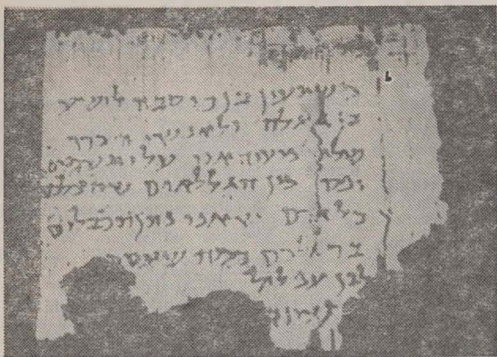 משמעון בן כוסבה לישע
בן גלגלה ולאנשי הכרך
שלום מעיד אני עלי תשמים
מן הגללאים
כל אדם שאני נתן תכבלים
ברגלכם כמה שעסתי
לבן עפלול